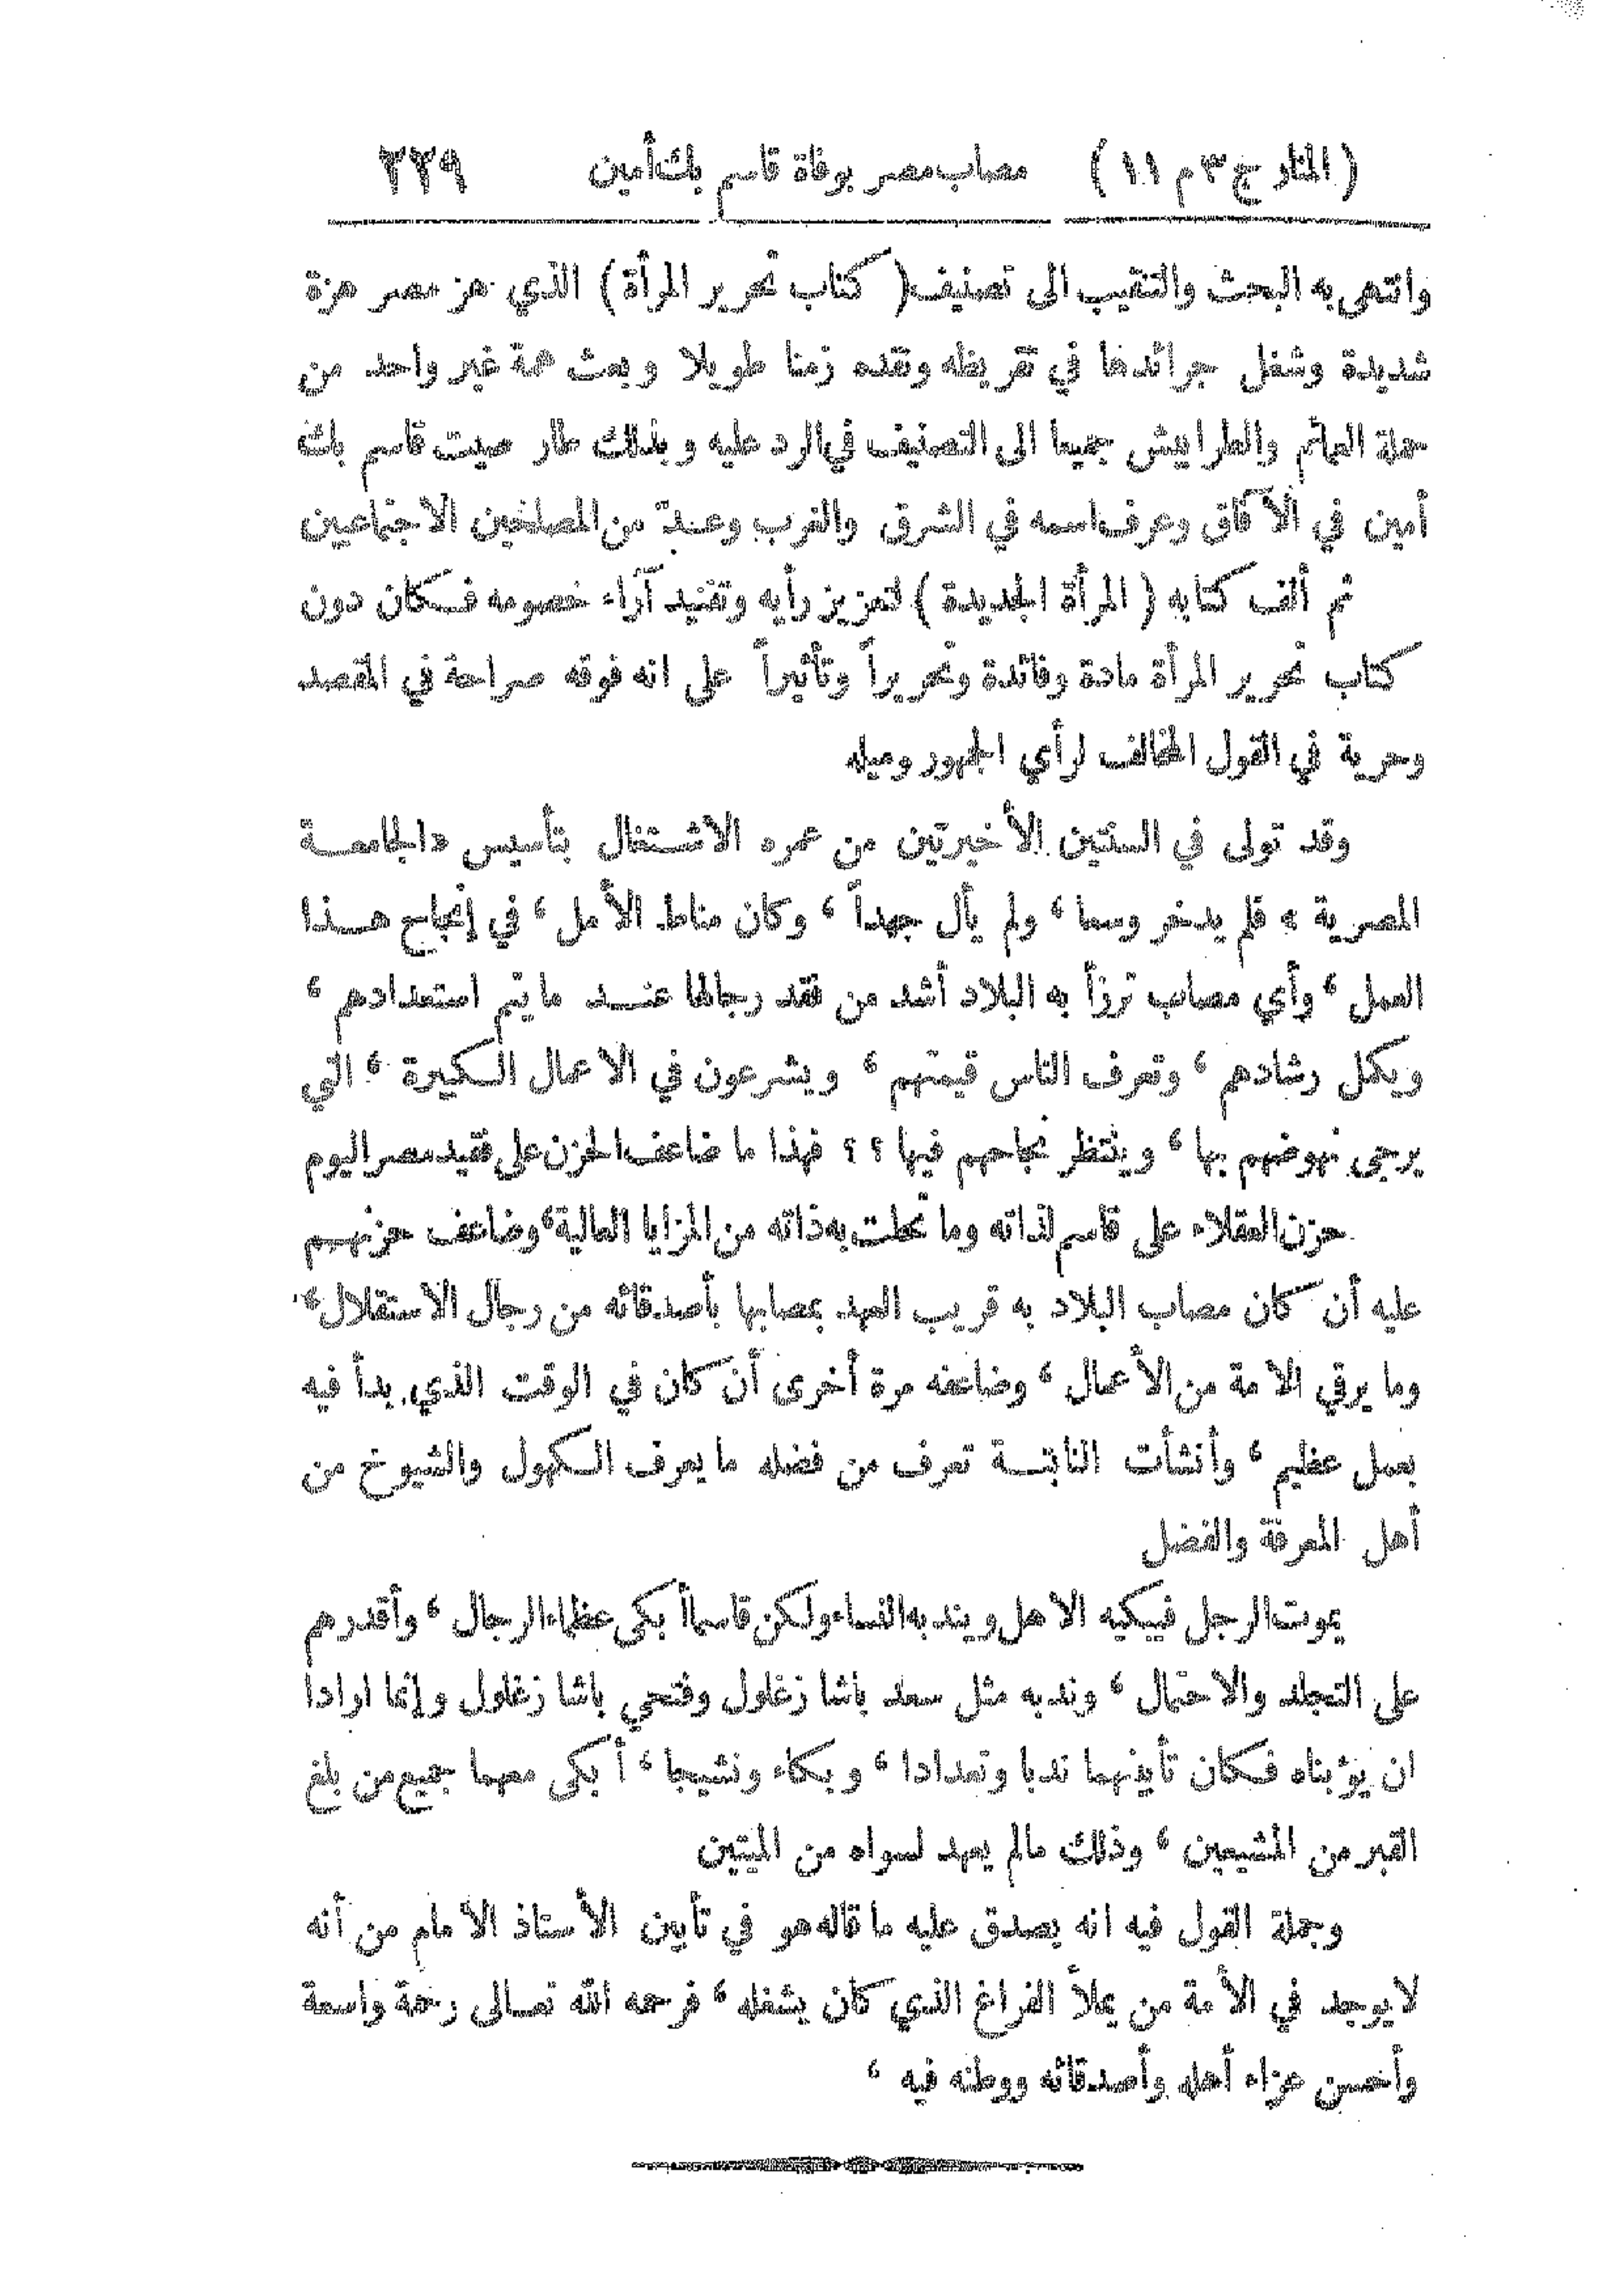 (المنار ج ٣ م ١١) مصاب مصر بوفاة قاسم بك أمين ٢٢٩
وانتهى به البحث والتنقيب الى تصنيف (كتاب تحرير المرأة) الذي هز مصر هزة
شديدة وشغل جرائدها في تقريظه ونقده زمنا طويلا وبعث همة غير واحد من
حملة العمائم والطرابيش جميعا الى التصنيف في الرد عليه وبذلك طار صيت قاسم بك
أمين في الآفاق وعرف اسمه في الشرق والغرب وعد من المصلحين الاجتماعيين
ثم ألف كتابه (المرأة الجديدة) لتعزيز رأيه وتفنيد آراء خصومه فكان دون
كتاب تحرير المرأة مادة وفائدة وتحريراً وتأثيراً على انه فوقه صراحة في المقصد
وحرية في القول المخالف لرأي الجمهور وميله
وقد تولى في السنتين الأخيرتين من عمره الاشتغال بتأسيس «الجامعة
المصرية » فلم يدخر وسعا ، ولم يأل جهداً ، وكان مناط الأمل ، في إنجاح هذا
العمل ، وأي مصاب ترزأ به البلاد أشد من فقد رجالها عند ما يتم استعدادهم ،
ويكمل رشادهم ، وتعرف الناس قيمتهم ، ويشرعون في الاعمال الكبيرة ، التي
يرجى نهوضهم بها ، وينتظر نجاحهم فيها ؟ ؟ فهذا ما ضاعف الحزن على فقيد مصر اليوم
حزن العقلاء على قاسم لذاته وما تحلت به ذاته من المزايا العالية، وضاعف حزنهم
عليه أن كان مصاب البلاد به قريب العهد بمصابها بأصدقائه من رجال الاستقلال،
وما يرقي الامة من الأعمال ، وضاعفه مرة أخرى أن كان في الوقت الذي بدأ فيه
بعمل عظيم ، وأنشأت النابتة تعرف من فضله ما يعرف الكهول والشيوخ من
أهل المعرفة والفضل
يموت الرجل فيبكيه الاهل ويندبه النساء ولكن قاسماً أبكى عظماء الرجال ، وأقدرهم
على التجلد والاحتمال ، وندبه مثل سعد باشا زغلول وفتحي باشا زغلول وإنما ارادا
ان يؤبناه فكان تأبينهما ندبا وتعدادا ، وبكاء ونشيجا ، أبكى معهما جميع من بلغ
القبر من المشيعين ، وذلك مالم يعهد لسواه من الميتين
وجملة القول فيه انه يصدق عليه ما قاله هو في تأبين الأستاذ الامام من أنه
لا يوجد في الأمة من يملأ الفراغ الذي كان يشغله ، فرحمه الله تعالى رحمة واسعة
وأحسن عزاء أهله وأصدقائه ووطنه فيه ،